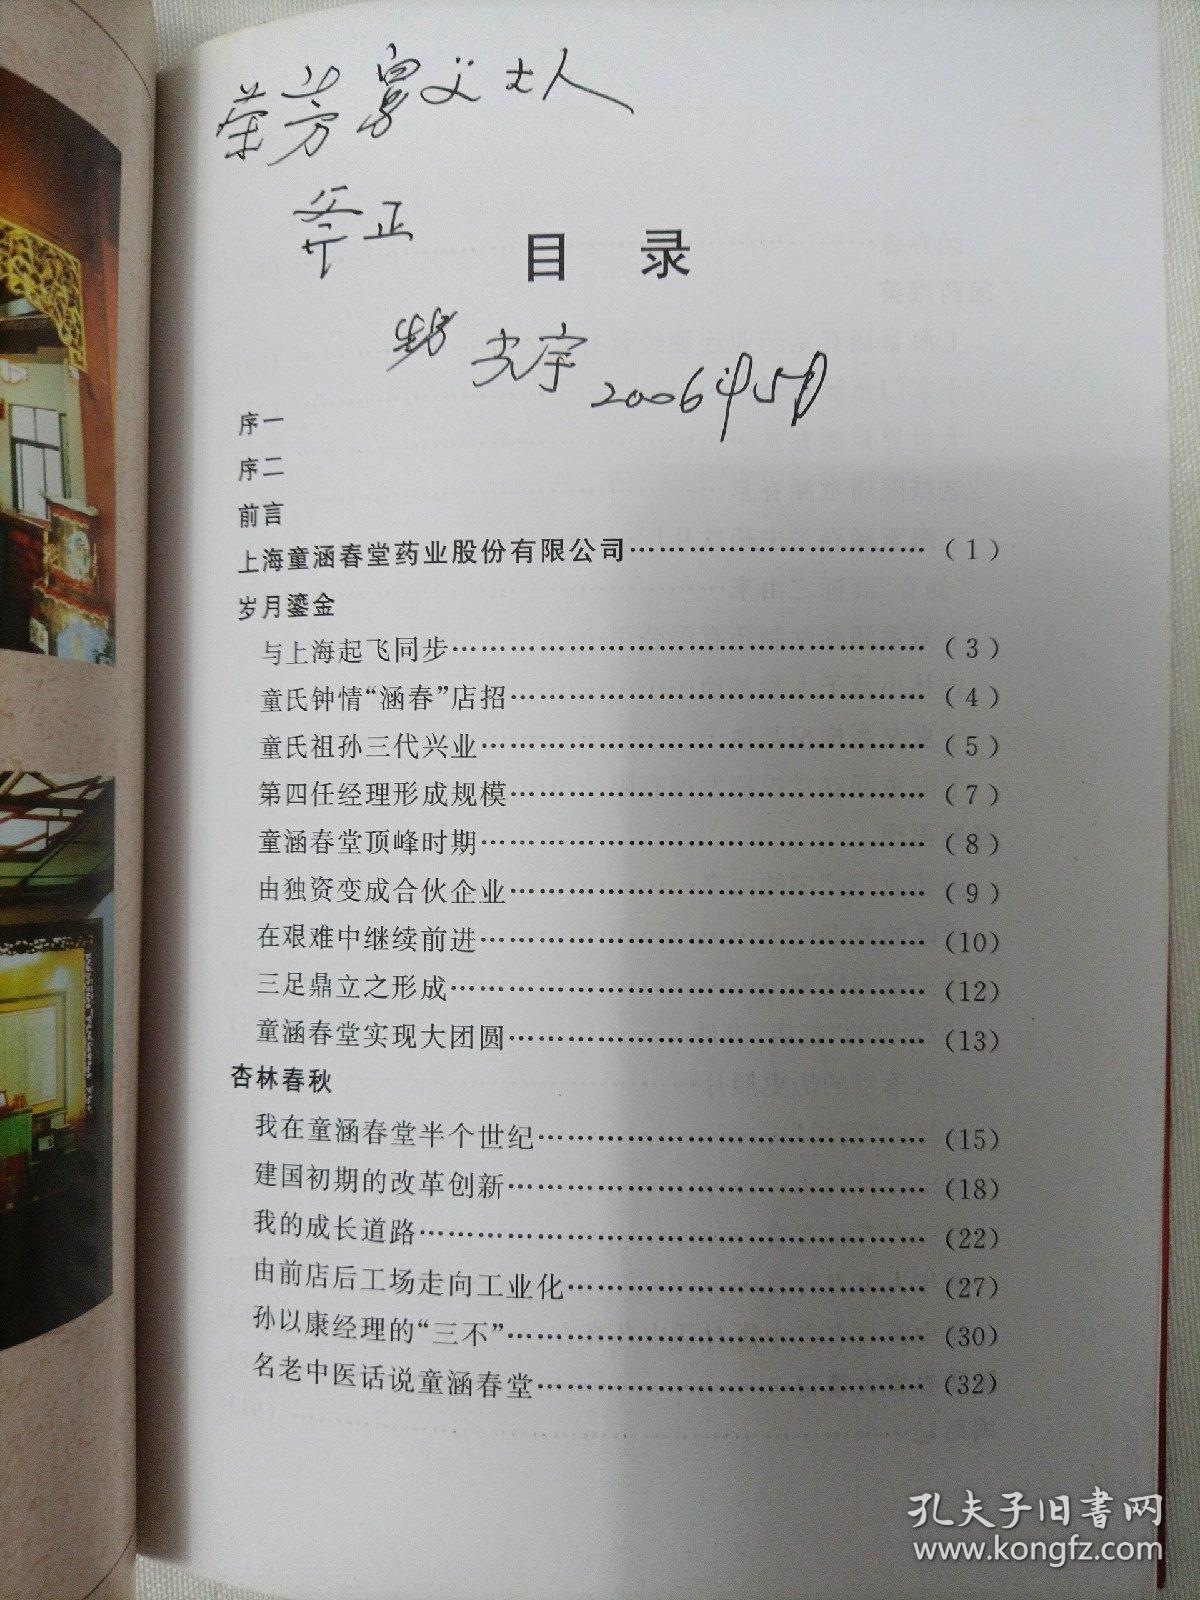 荣芳舅父大人
斧正
甥 光宇 2006年5月
目 录
序一
序二
前言
上海童涵春堂药业股份有限公司……………………………（1）
岁月鎏金
与上海起飞同步……………………………………………（3）
童氏钟情“涵春”店招………………………………………（4）
童氏祖孙三代兴业…………………………………………（5）
第四任经理形成规模………………………………………（7）
童涵春堂顶峰时期…………………………………………（8）
由独资变成合伙企业………………………………………（9）
在艰难中继续前进…………………………………………（10）
三足鼎立之形成……………………………………………（12）
童涵春堂实现大团圆………………………………………（13）
杏林春秋
我在童涵春堂半个世纪……………………………………（15）
建国初期的改革创新………………………………………（18）
我的成长道路………………………………………………（22）
由前店后工场走向工业化…………………………………（27）
孙以康经理的“三不”………………………………………（30）
名老中医话说童涵春堂……………………………………（32）
孔夫子旧书网
www.kongfz.com